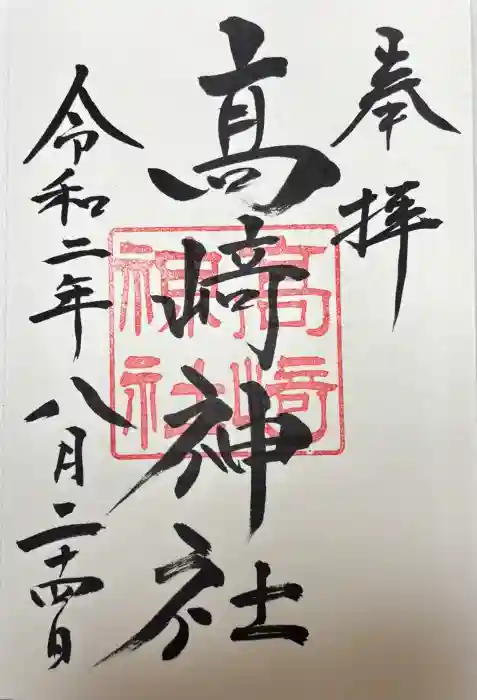 奉拝
髙﨑神社
高崎
神社
令和二年八月二十四日